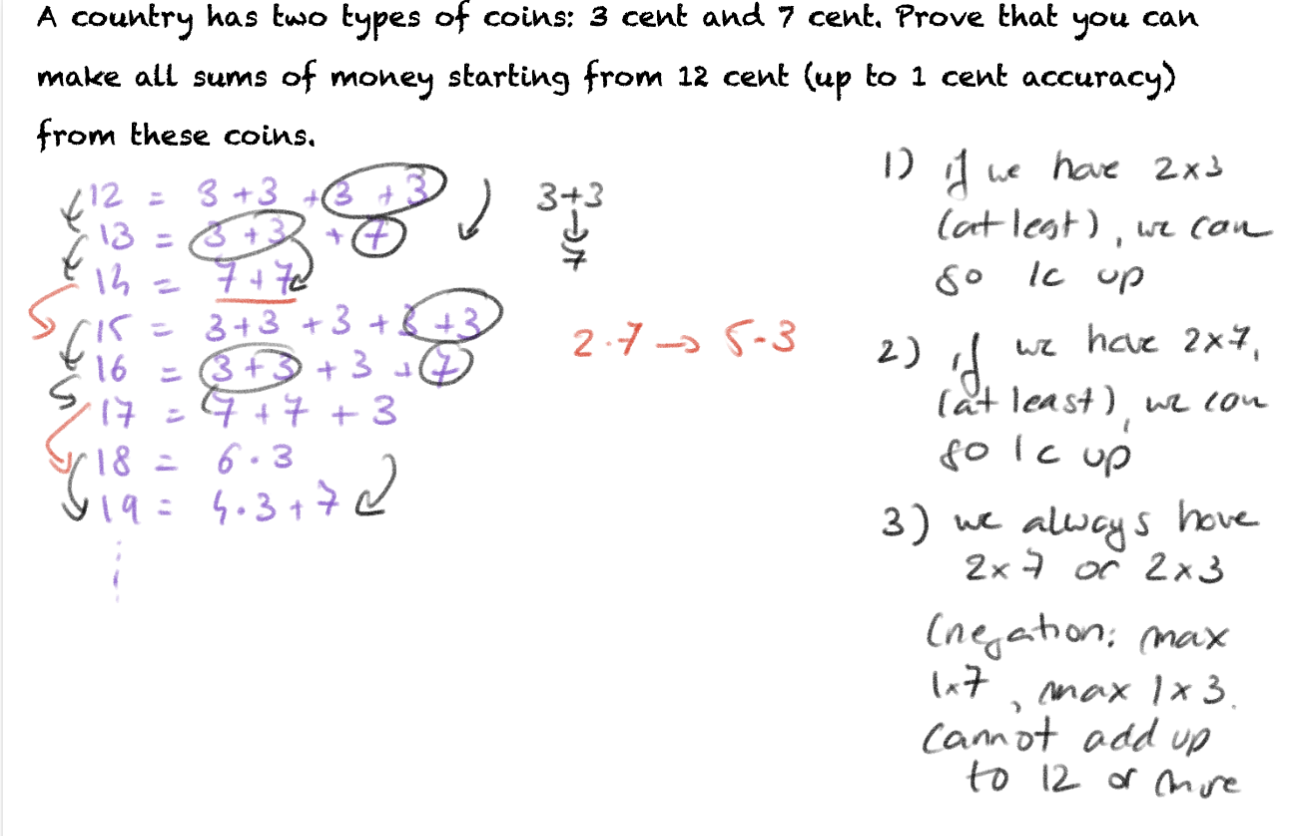 A country has two types of coins: 3 cent and 7 cent. Prove that you can
make all sums of money starting from 12 cent (up to 1 cent accuracy)
from these coins.
12 = 3+3 +3 +3
13 = 3+3 + 7
14 = 7+7
15 = 3+3 +3 +3 +3
16 = 3+3 +3 +7
17 = 7+7 +3
18 = 6·3
19 = 4·3+7
3+3
↓
7
2·7 → 5·3
1) if we have 2x3
(at lest), we can
go 1c up
2) if we have 2x7,
(at least), we can
go 1c up
3) we always have
2x7 or 2x3
(negation: max
1x7, max 1x3.
Cannot add up
to 12 or more